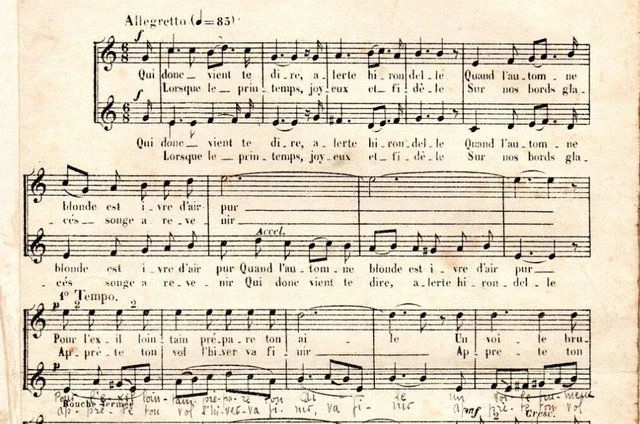 Allegretto (♩=85)
f
Qui donc_ vient te di_re, a_lerte hi_ron_del_le Quand l'au_tom_ne
Lorsque le_ prin_temps, joy_eux et_ fi_dè_le Sur nos bords gla_
f
Qui donc_ vient te di_re, a_lerte hi_ron_del_le Quand l'au_tom_ne
Lorsque le_ prin_temps, joy_eux et_ fi_dè_le Sur nos bords gla_
blonde est i_vre d'air pur
cés_ songe a re_ve nir
Accel.
blonde est i_vre d'air pur Quand l'au_tom_ne blonde est i_vre d'air pur
cés songe a re_ve_nir Qui donc vient te dire, a_lerte hi_ron_del_le
1º Tempo.
p 2 2
Pour l'ex_il loin_tain pré_pa_re ton ai_le Un voi le bru_
Ap_prê_te ton vol l'hi_ver va fi_nir Ap_prê_te ton
p
Bouche fermée
ap_prê_te ton vol l'hi-ver-va fi_nir, va fi_nir
mf 2 Cresc.